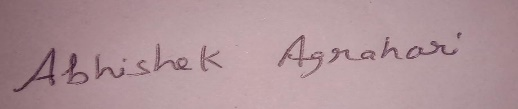 Abhishek Agrahari